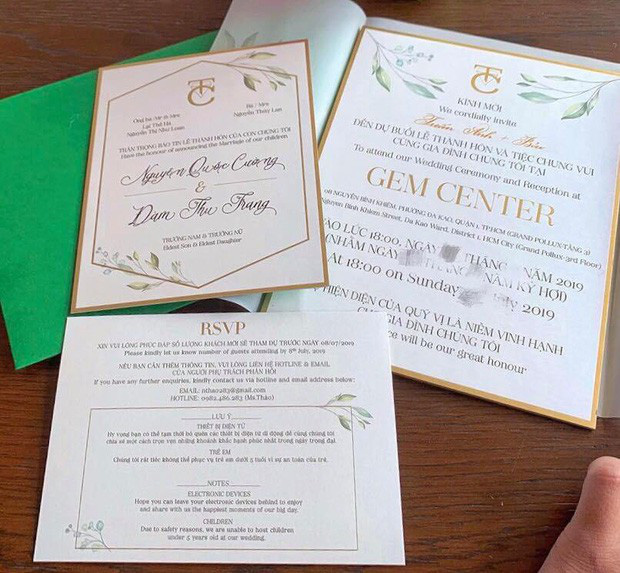 TC
Ông Bà/ Mr & Mrs
Lại Thế Hà
Nguyễn Thị Như Loan
Bà / Mrs
Nguyễn Thúy Lan
TRÂN TRỌNG BÁO TIN LỄ THÀNH HÔN CỦA CON CHÚNG TÔI
Have the honour of announcing the Marriage of our children
Nguyễn Quốc Cường
&
Đàm Thu Trang
TRƯỞNG NAM & TRƯỞNG NỮ
Eldest Son & Eldest Daughter
TC
KÍNH MỜI
We cordially invite
ĐẾN DỰ BUỔI LỄ THÀNH HÔN VÀ TIỆC CHUNG VUI
CÙNG GIA ĐÌNH CHÚNG TÔI TẠI
To attend our Wedding Ceremony and Reception at
GEM CENTER
08 NGUYỄN BỈNH KHIÊM, PHƯỜNG ĐA KAO, QUẬN 1, TP.HCM (GRAND POLLUX-TẦNG 3)
Nguyen Binh Khiem Street, Da Kao Ward, District 1, HCM City (Grand Pollux-3rd Floor)
VÀO LÚC 18:00, NGÀY THÁNG NĂM 2019
(NHẰM NGÀY NĂM KỶ HỢI)
At 18:00 on Sunday July 2019
HIỆN DIỆN CỦA QUÝ VỊ LÀ NIỀM VINH HẠNH
CHO GIA ĐÌNH CHÚNG TÔI
will be our great honour
RSVP
XIN VUI LÒNG PHÚC ĐÁP SỐ LƯỢNG KHÁCH MỜI SẼ THAM DỰ TRƯỚC NGÀY 08/07/2019
Please kindly let us know number of guests attending by 8th July, 2019
NẾU BẠN CẦN THÊM THÔNG TIN, VUI LÒNG LIÊN HỆ HOTLINE & EMAIL
CỦA NGƯỜI PHỤ TRÁCH PHẢN HỒI
If you have any further enquiries, kindly contact us via hotline and email address below:
EMAIL: nthao283@gmail.com
HOTLINE: 0982.486.283 (Ms.Thảo)
LƯU Ý
THIẾT BỊ ĐIỆN TỬ
Hy vọng bạn có thể tạm thời bỏ quên các thiết bị điện tử di động để cùng chúng tôi
chia sẻ một cách trọn vẹn những khoảnh khắc hạnh phúc nhất trong ngày trọng đại.
TRẺ EM
Chúng tôi rất tiếc không thể phục vụ trẻ em dưới 5 tuổi vì sự an toàn của trẻ.
NOTES
ELECTRONIC DEVICES
Hope you can leave your electronic devices behind to enjoy
and share with us the happiest moments of our big day.
CHILDREN
Due to safety reasons, we are unable to host children
under 5 years old at our wedding.